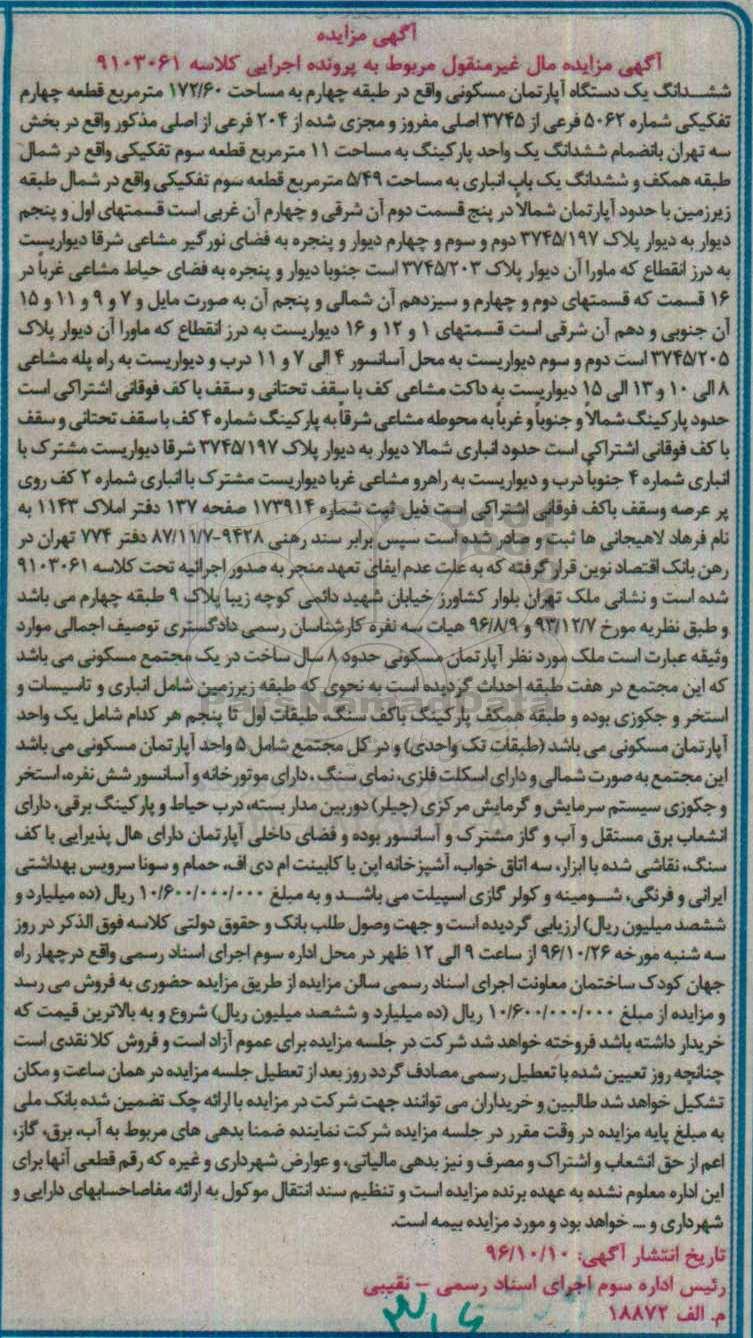 آگهی مزایده
آگهی مزایده مال غیرمنقول مربوط به پرونده اجرایی کلاسه ۹۱۰۳۰۶۱
ششدانگ یک دستگاه آپارتمان مسکونی واقع در طبقه چهارم به مساحت ۱۷۲/۶۰ مترمربع قطعه چهارم
تفکیکی شماره ۵۰۶۲ فرعی از ۳۷۴۵ اصلی مفروز و مجزی شده از ۲۰۴ فرعی از اصلی مذکور واقع در بخش
سه تهران بانضمام ششدانگ یک واحد پارکینگ به مساحت ۱۱ مترمربع قطعه سوم تفکیکی واقع در شمال
طبقه همکف و ششدانگ یک باب انباری به مساحت ۵/۴۹ مترمربع قطعه سوم تفکیکی واقع در شمال طبقه
زیرزمین با حدود آپارتمان شمالا در پنج قسمت دوم آن شرقی و چهارم آن غربی است قسمتهای اول و پنجم
دیوار به دیوار پلاک ۳۷۴۵/۱۹۷ دوم و سوم و چهارم دیوار و پنجره به فضای نورگیر مشاعی شرقا دیواریست
به درز انقطاع که ماورا آن دیوار پلاک ۳۷۴۵/۲۰۳ است جنوبا دیوار و پنجره به فضای حیاط مشاعی غرباً در
۱۶ قسمت که قسمتهای دوم و چهارم و سیزدهم آن شمالی و پنجم آن به صورت مایل و ۷ و ۹ و ۱۱ و ۱۵
آن جنوبی و دهم آن شرقی است قسمتهای ۱ و ۱۲ و ۱۶ دیواریست به درز انقطاع که ماورا آن دیوار پلاک
۳۷۴۵/۲۰۵ است دوم و سوم دیواریست به محل آسانسور ۴ الی ۷ و ۱۱ درب و دیواریست به راه پله مشاعی
۸ الی ۱۰ و ۱۳ الی ۱۵ دیواریست به داکت مشاعی کف با سقف تحتانی و سقف با کف فوقانی اشتراکی است
حدود پارکینگ شمالاً و جنوباً و غرباً به محوطه مشاعی شرقاً به پارکینگ شماره ۴ کف با سقف تحتانی و سقف
با کف فوقانی اشتراکی است حدود انباری شمالا دیوار به دیوار پلاک ۳۷۴۵/۱۹۷ شرقا دیواریست مشترک با
انباری شماره ۴ جنوباً درب و دیواریست به راهرو مشاعی غربا دیواریست مشترک با انباری شماره ۲ کف روی
پر عرصه وسقف باکف فوقانی اشتراکی است ذیل ثبت شماره ۱۷۳۹۱۴ صفحه ۱۳۷ دفتر املاک ۱۱۴۳ به
نام فرهاد لاهیجانی ها ثبت و صادر شده است سپس برابر سند رهنی ۹۴۲۸-۸۷/۱۱/۷ دفتر ۷۷۴ تهران در
رهن بانک اقتصاد نوین قرار گرفته که به علت عدم ایفای تعهد منجر به صدور اجرائیه تحت کلاسه ۹۱۰۳۰۶۱
شده است و نشانی ملک تهران بلوار کشاورز خیابان شهید دائمی کوچه زیبا پلاک ۹ طبقه چهارم می باشد
و طبق نظریه مورخ ۹۳/۱۲/۷ و ۹۶/۸/۹ هیات سه نفره کارشناسان رسمی دادگستری توصیف اجمالی موارد
وثیقه عبارت است ملک مورد نظر آپارتمان مسکونی حدود ۸ سال ساخت در یک مجتمع مسکونی می باشد
که این مجتمع در هفت طبقه احداث گردیده است به نحوی که طبقه زیرزمین شامل انباری و تاسیسات و
استخر و جکوزی بوده و طبقه همکف پارکینگ باکف سنگ، طبقات اول تا پنجم هر کدام شامل یک واحد
آپارتمان مسکونی می باشد (طبقات تک واحدی) و در کل مجتمع شامل ۵ واحد آپارتمان مسکونی می باشد
این مجتمع به صورت شمالی و دارای اسکلت فلزی، نمای سنگ ، دارای موتورخانه و آسانسور شش نفره، استخر
و جکوزی سیستم سرمایش و گرمایش مرکزی (چیلر) دوربین مدار بسته، درب حیاط و پارکینگ برقی، دارای
انشعاب برق مستقل و آب و گاز مشترک و آسانسور بوده و فضای داخلی آپارتمان دارای هال پذیرایی با کف
سنگ، نقاشی شده با ابزار، سه اتاق خواب، آشپزخانه اپن با کابینت ام دی اف، حمام و سونا سرویس بهداشتی
ایرانی و فرنگی، شومینه و کولر گازی اسپیلت می باشد و به مبلغ ۱۰/۶۰۰/۰۰۰/۰۰۰ ریال (ده میلیارد و
ششصد میلیون ریال) ارزیابی گردیده است و جهت وصول طلب بانک و حقوق دولتی کلاسه فوق الذکر در روز
سه شنبه مورخه ۹۶/۱۰/۲۶ از ساعت ۹ الی ۱۲ ظهر در محل اداره سوم اجرای اسناد رسمی واقع درچهار راه
جهان کودک ساختمان معاونت اجرای اسناد رسمی سالن مزایده از طریق مزایده حضوری به فروش می رسد
و مزایده از مبلغ ۱۰/۶۰۰/۰۰۰/۰۰۰ ریال (ده میلیارد و ششصد میلیون ریال) شروع و به بالاترین قیمت که
خریدار داشته باشد فروخته خواهد شد شرکت در جلسه مزایده برای عموم آزاد است و فروش کلا نقدی است
چنانچه روز تعیین شده با تعطیل رسمی مصادف گردد روز بعد از تعطیل جلسه مزایده در همان ساعت و مکان
تشکیل خواهد شد طالبین و خریداران می توانند جهت شرکت در مزایده با ارائه چک تضمین شده بانک ملی
به مبلغ پایه مزایده در وقت مقرر در جلسه مزایده شرکت نماینده ضمنا بدهی های مربوط به آب، برق، گاز،
اعم از حق انشعاب و اشتراک و مصرف و نیز بدهی مالیاتی، و عوارض شهرداری و غیره که رقم قطعی آنها برای
این اداره معلوم نشده به عهده برنده مزایده است و تنظیم سند انتقال موکول به ارائه مفاصاحسابهای دارایی و
شهرداری و ... خواهد بود و مورد مزایده بیمه است.
تاریخ انتشار آگهی: ۹۶/۱۰/۱۰
رئیس اداره سوم اجرای اسناد رسمی - نقیبی
م. الف ۱۸۸۷۲